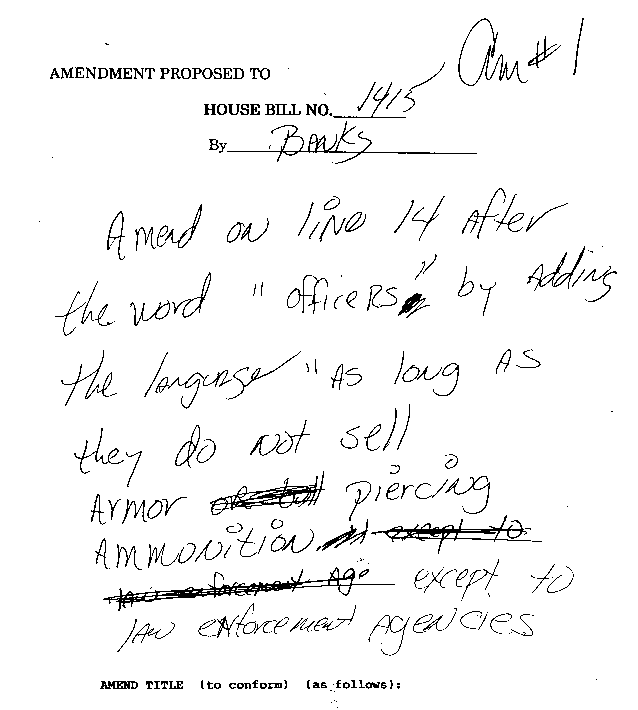 Am # 1
AMENDMENT PROPOSED TO
HOUSE BILL NO. 1415
By BANKS
Amend on line 14 After
the word "officers" by Adding
the language "As long AS
they do not sell
ARMOR piercing
AMMONITION
except to
law enforcement Agencies
AMEND TITLE (to conform) (as follows):